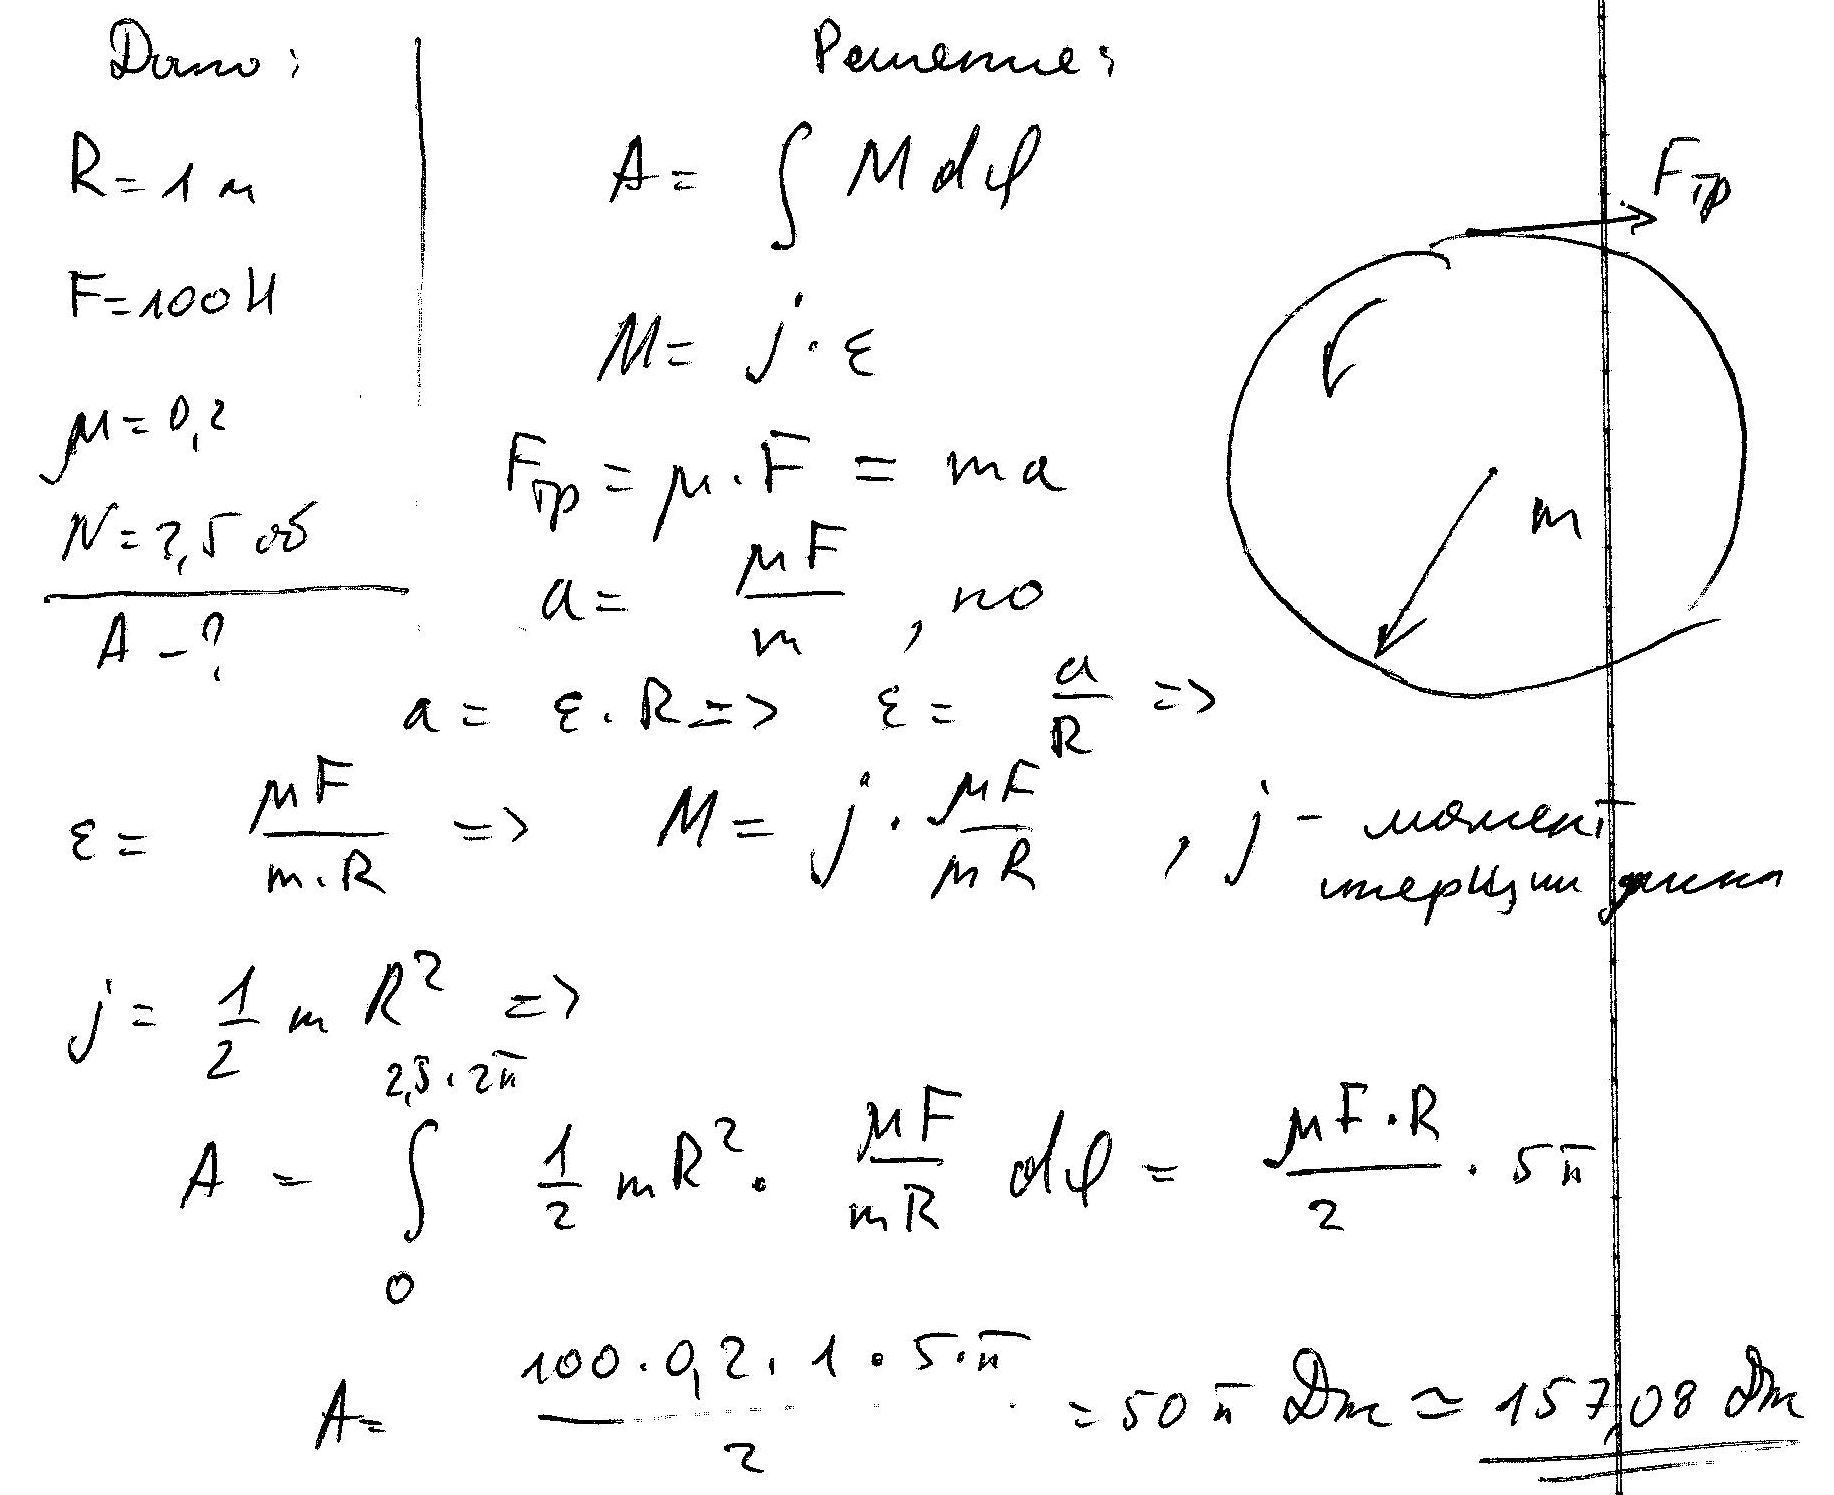 Дано:
R = 1 м
F = 100 Н
μ = 0,2
N = 2,5 об
A - ?
Решение:
A = ∫ M dφ
M = j · ε
Fтр = μ · F = ma
a = μF / m , но
a = ε · R => ε = a / R =>
ε = μF / m · R => M = j · μF / mR , j - момент
инерции диска
j = 1/2 m R² =>
A = ∫₀^(2,5 · 2π) 1/2 mR² · μF / mR dφ = μF · R / 2 · 5π
A = 100 · 0,2 · 1 · 5 · π / 2 = 50 π Дж ≃ 157,08 Дж
Fтр
m